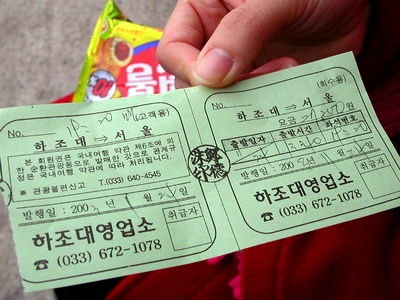 No. (고객용)
하 조 대 ⇒ 서 울
본 회원권은 국내여행 약관 제6조에 의
한 순환관광용으로 발매한 것으로 관계규
정은 국내여행 약관에 따라 처리됩니다.
※ 관광불편신고 T.(033) 640-4545
발행일 : 200 년 월 일
취급자
하조대영업소
☎ (033) 672-1078
No. (회수용)
하 조 대 ⇒ 서 울
요금 원
출발일자 출발시간 좌석번호
발행일 : 200 년 월 일
취급자
하조대영업소
☎ (033) 672-1078